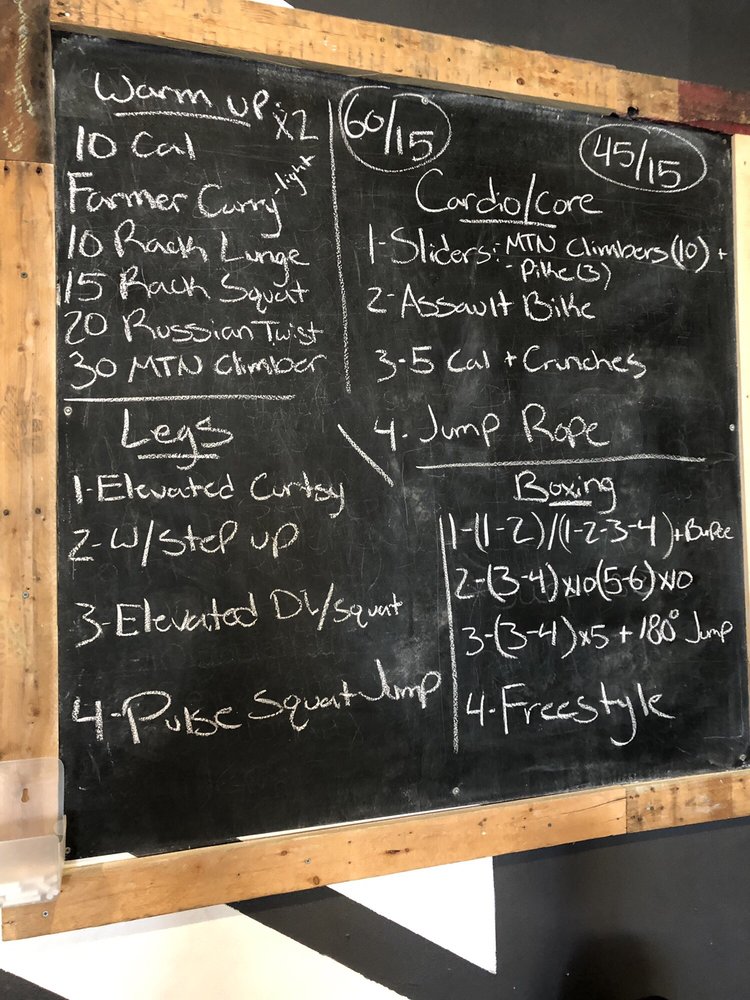 Warm up: x2
10 Cal
Farmer Carry -light
10 Rack Lunge
15 Rack Squat
20 Russian Twist
30 MTN Climber
60/15
45/15
Cardio/core
1-Sliders: MTN Climbers (10) +
- Pike (3)
2-Assault Bike
3-5 Cal + Crunches
4. Jump Rope
Legs
1-Elevated Curtsy
2-W/Step up
3-Elevated DL/squat
4-Pulse Squat Jump
Boxing
1-(1-2)/(1-2-3-4)+Burpee
2-(3-4)x10(5-6)x10
3-(3-4)x5 + 180° Jump
4-Freestyle